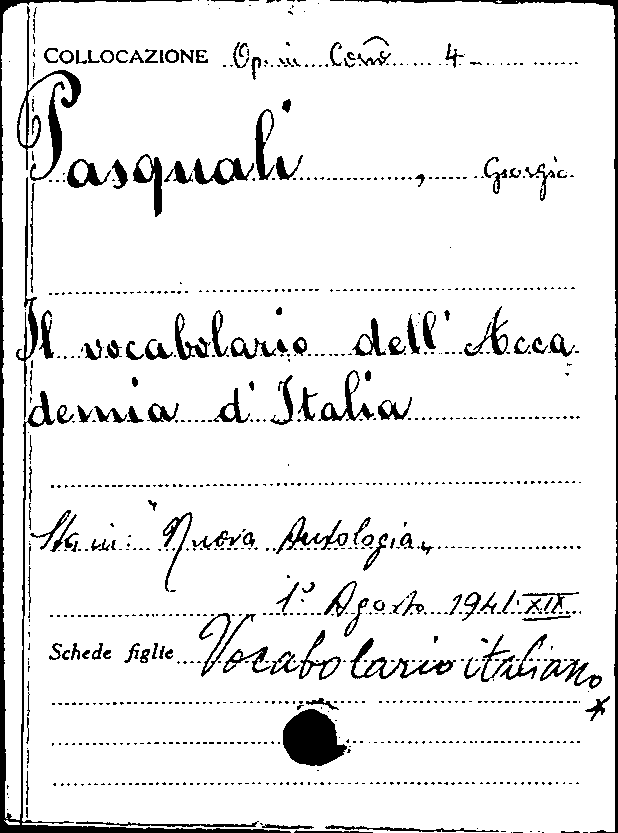 COLLOCAZIONE Op. in Cons 4
Pasquali, Giorgio
Il vocabolario dell' Acca
demia d' Italia
Sta in: "Nuova Antologia"
1° Agosto 1941 XIX
Schede figlie Vocabolario italiano
*